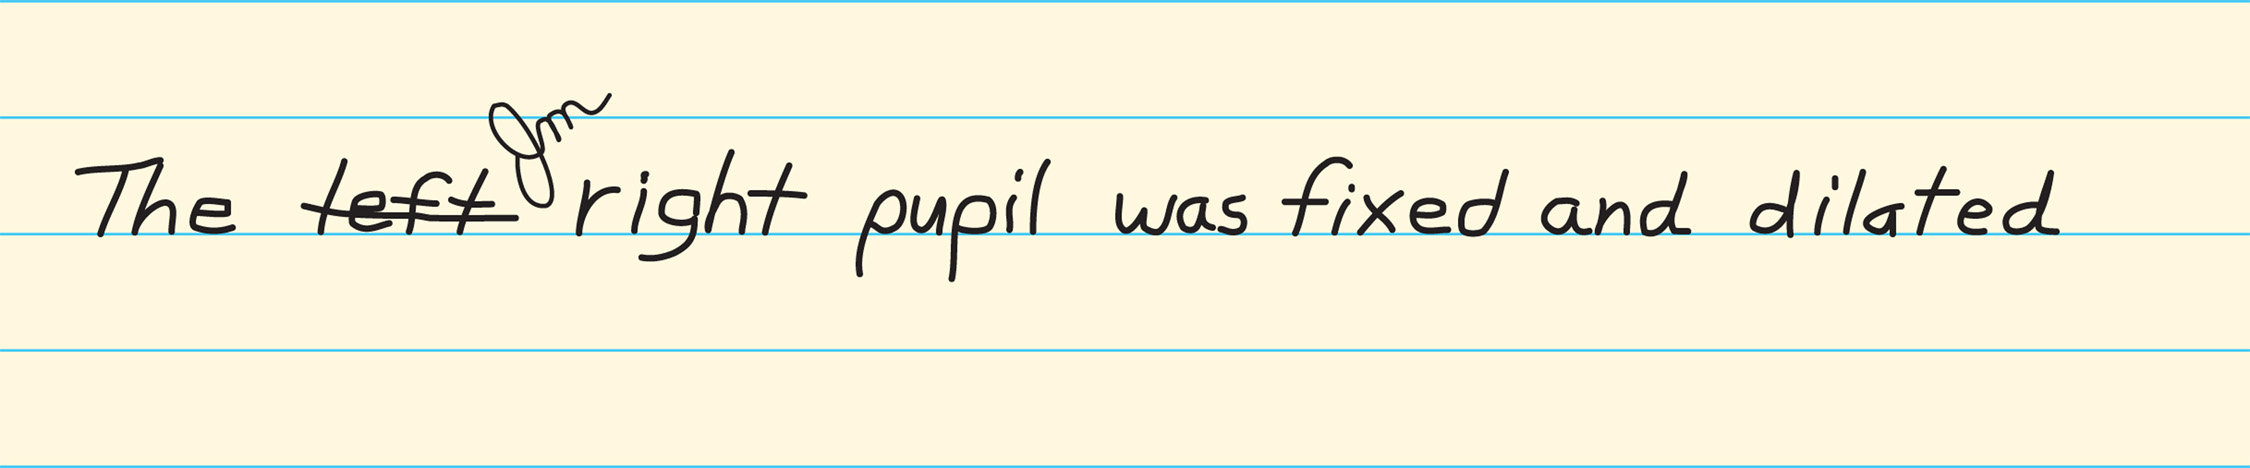 The left Jm right pupil was fixed and dilated